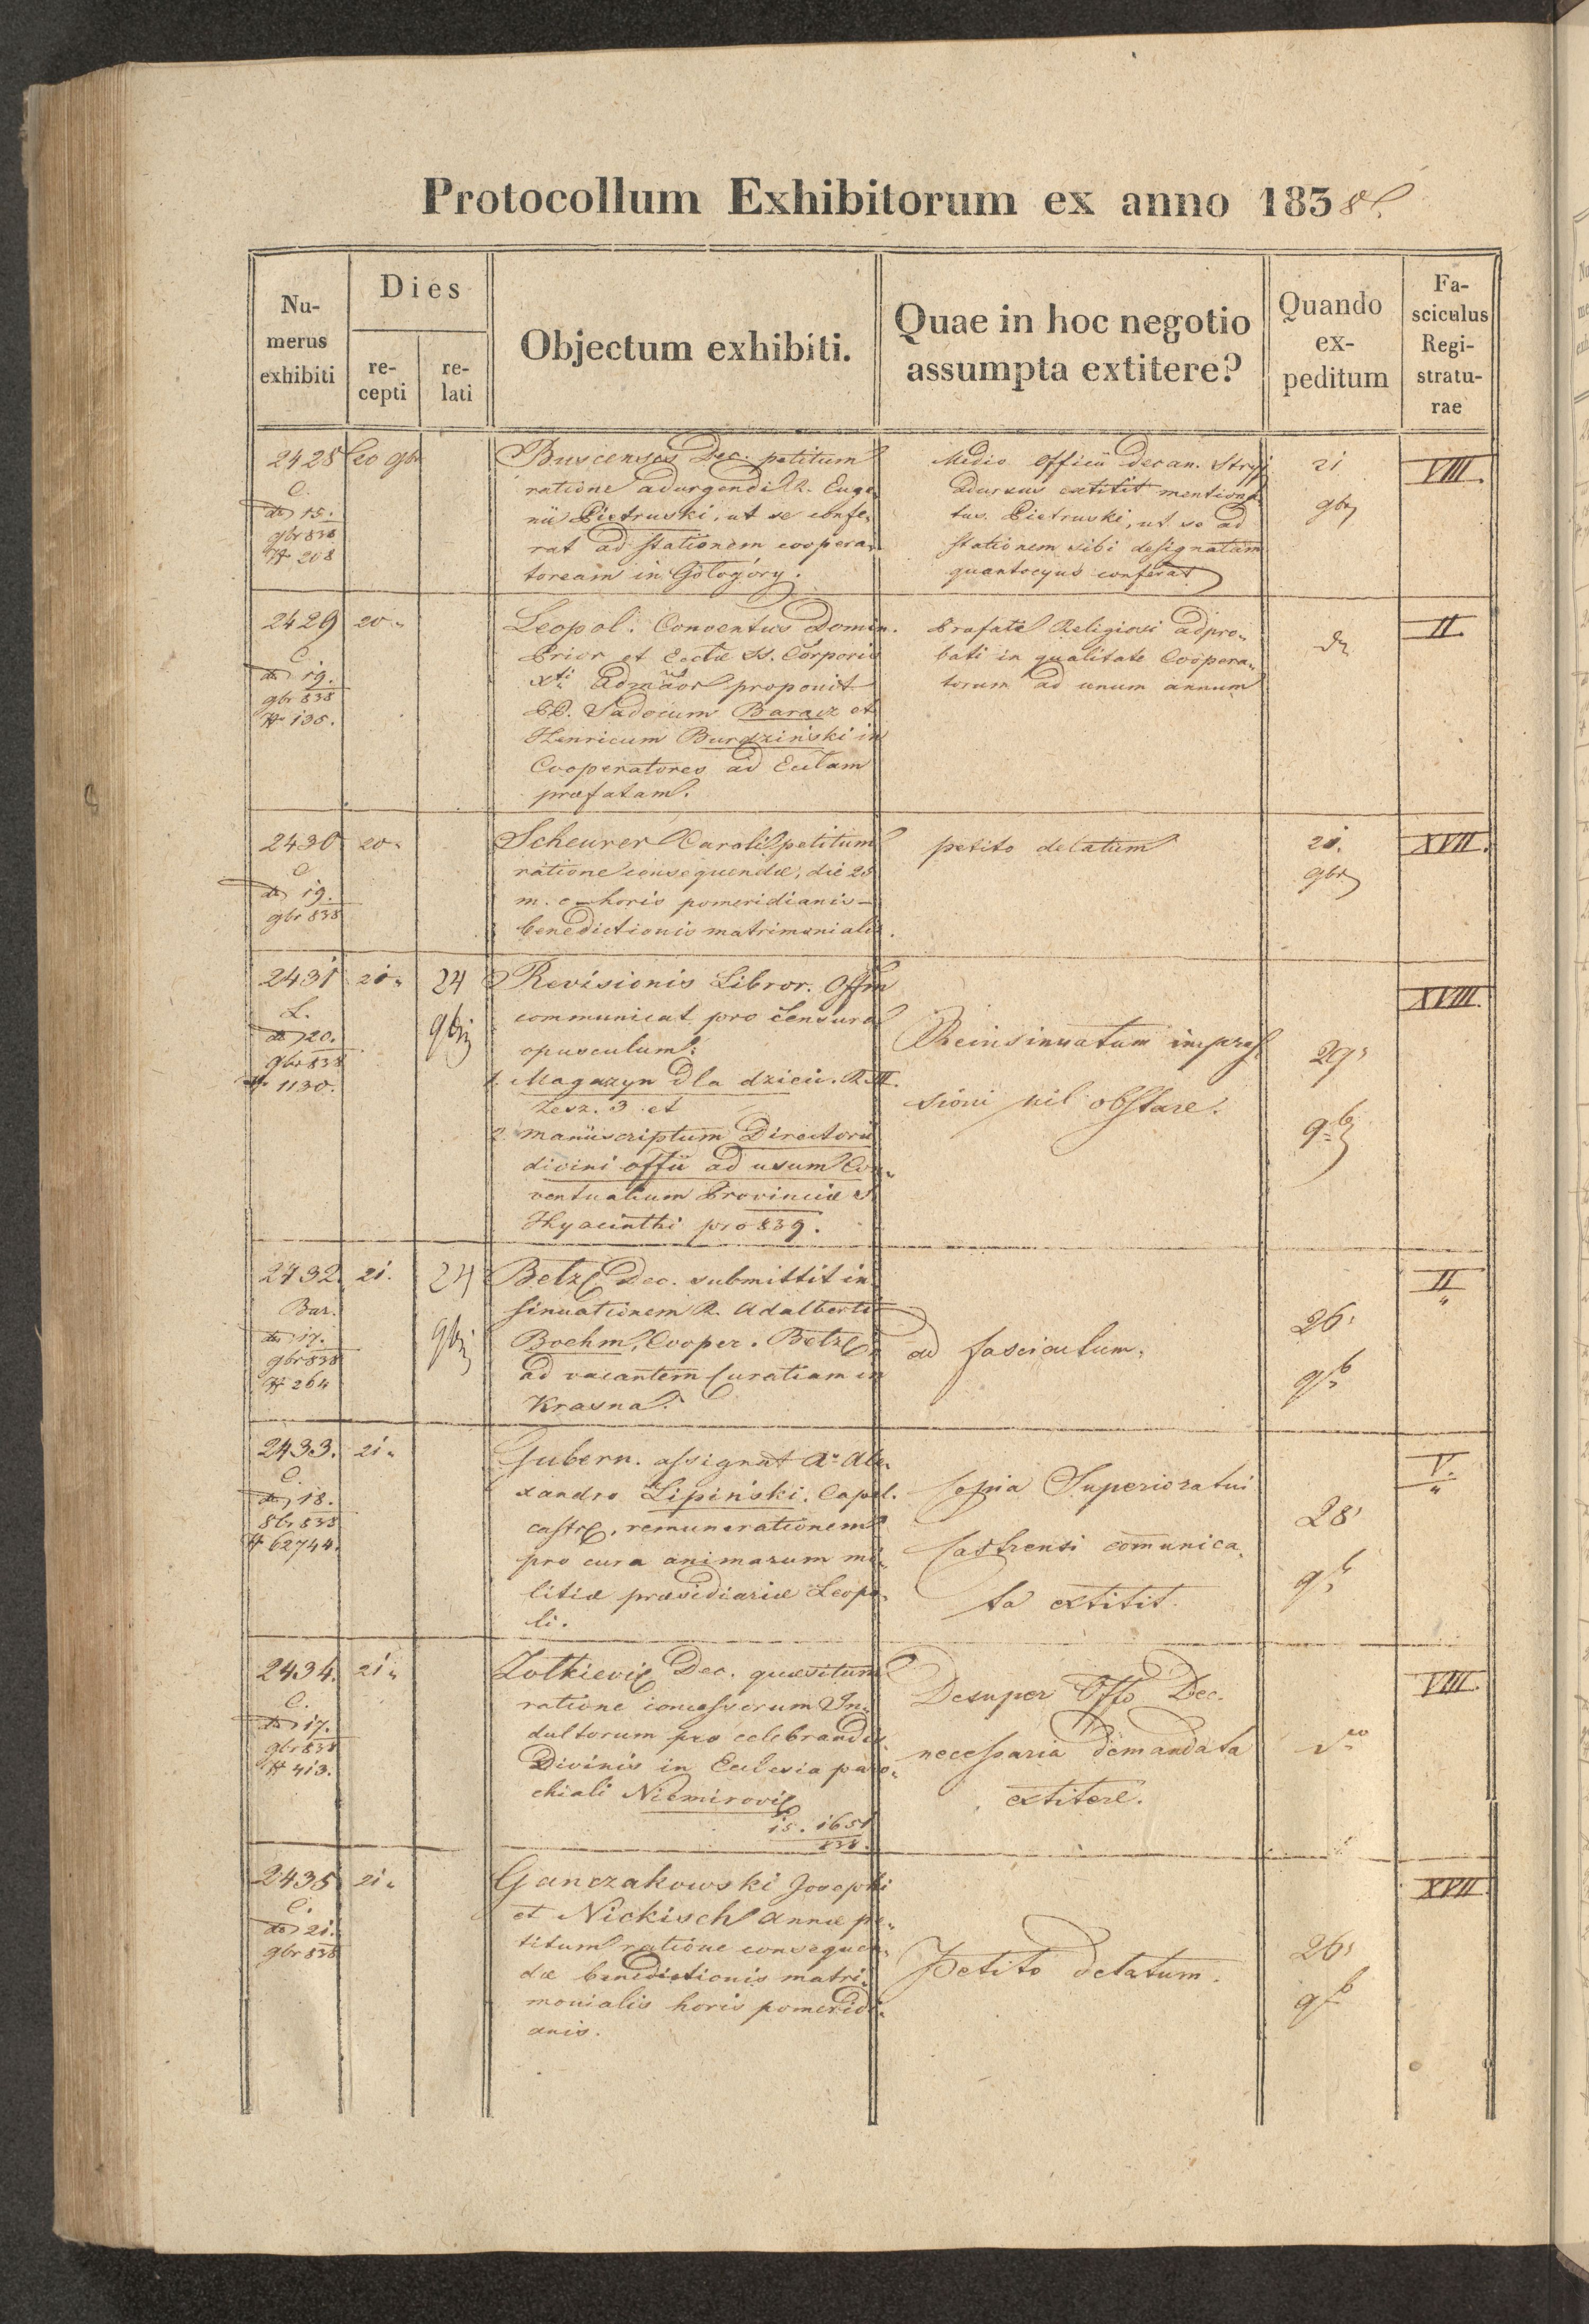 Protocollum Exhibitorum ex anno 1838.
Nu-
merus
exhibiti
Dies
re-
cepti
re-
lati
Objectum exhibiti.
Quae in hoc negotio
assumpta extitere?
Quando
ex-
peditum
Fa-
sciculus
Regi-
stratu-
rae
2428
C.
de 15.
9br 838
# 208
20 9br
Buscensis Dec. petitum
ratione adurgendi R. Euge-
nii Pietruski, ut se confe-
rat ad stationem coopera-
toream in Gołogóry.
Medio officii decan. Stryj
adursus extitit mentiona-
tus Pietruski, ut se ad
stationem sibi designatam
quantocyus conferat
21
9br
VIII.
2429
C.
de 19.
9br 838
# 135.
20 "
Leopol. Conventus Domin.
Prior et Eccliæ SS. Corporis
Xti Admator proponit
PP. Sadocum Baracz et
Henricum Burdziński in
Cooperatores ad Ecclam
præfatam.
Præfati Religiosi adpro-
bati in qualitate Coopera-
torum ad unum annum
do
II.
2430
C.
de 19.
9br 838
20 "
Scheurer Caroli petitum
ratione consequendæ, die 25
m. c. horis pomeridianis
benedictionis matrimonialis.
petito delatum
21.
9br
XVII.
2431
L.
de 20.
9br 838
# 1130.
21 "
24
9br
Revisionis Libror. Offm
communicat pro Censura
opusculum:
1. Magazyn dla dzieci. R. III.
Zesz. 3 et
2. manuscriptum Directorii
divini offii ad usum Con-
ventualium Provinciæ S.
Hyacinthi pro 839.
Reinsinuatum impres-
sioni nil obstare.
29
9b
XVIII.
2432
Bar.
de 17.
9br 838
# 264
21.
24
9br
Betz Dec. submittit in-
sinuationem R. Adalberti
Boehm, Cooper. Betz
ad vacantem Curatiam in
Krasna.
ad fasciculum.
26
9b
II
"
2433.
C.
de 18.
8br 838
# 62744.
21 "
Gubern. assignat Ao Ale-
xandro Lipiński, Capel.
castr, remunerationem
pro cura animarum mi-
litiæ præsidiariæ Leopo-
li.
Copia Superioratui
Castrensi comunica-
ta extitit.
28
9b
V.
"
2434.
C.
de 17.
9br 838
# 413.
21 "
Żolkievi Dec. quæsitum
ratione concessorum In-
dultorum pro celebrandis
Divinis in Ecclesia paro-
chiali Niemirovi
15. 1651
838.
Desuper Offo Dec.
necessaria demandata
extitere.
VIII.
2435
C.
de 21.
9br 838
21 "
Ganczakowski Josephi
et Nickisch Annæ pe-
titum ratione consequen-
dæ benedictionis matri-
monialis horis pomeridi-
anis.
Petito delatum.
26
9b
XVII